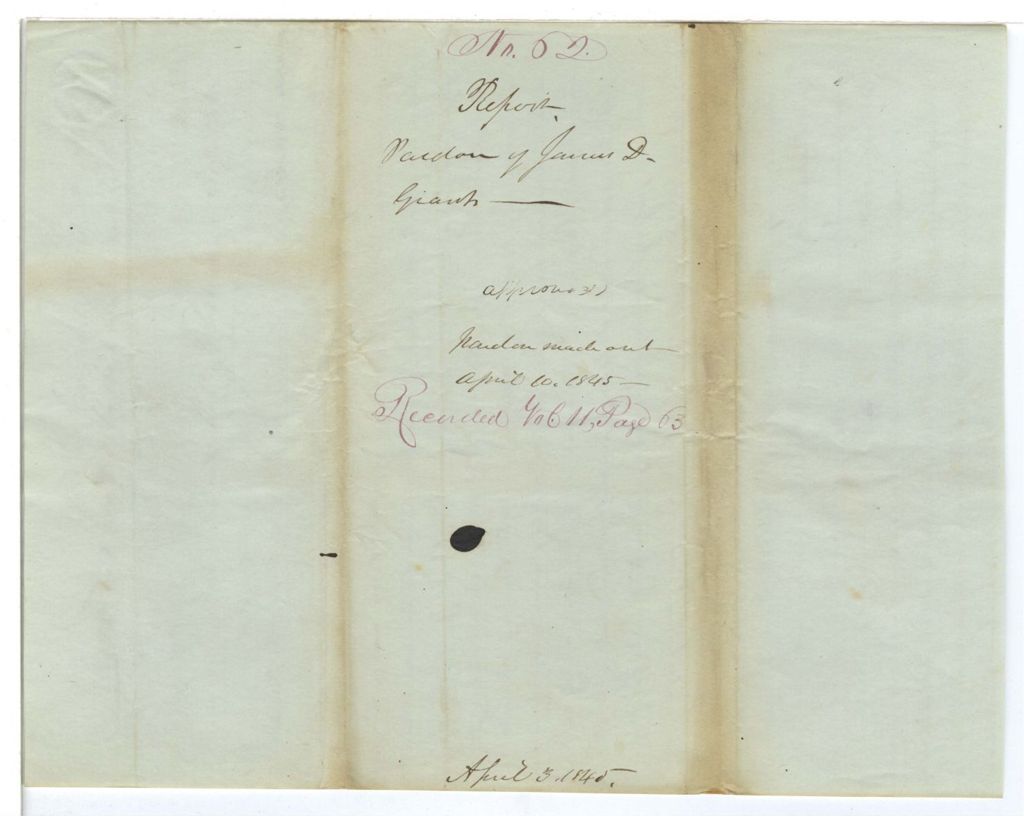 No. 62.
Report
Pardon of James D.
Grant —
approved
Pardon made out
April 10. 1845 —
Recorded Vol 11, Page 63
April 3. 1845.